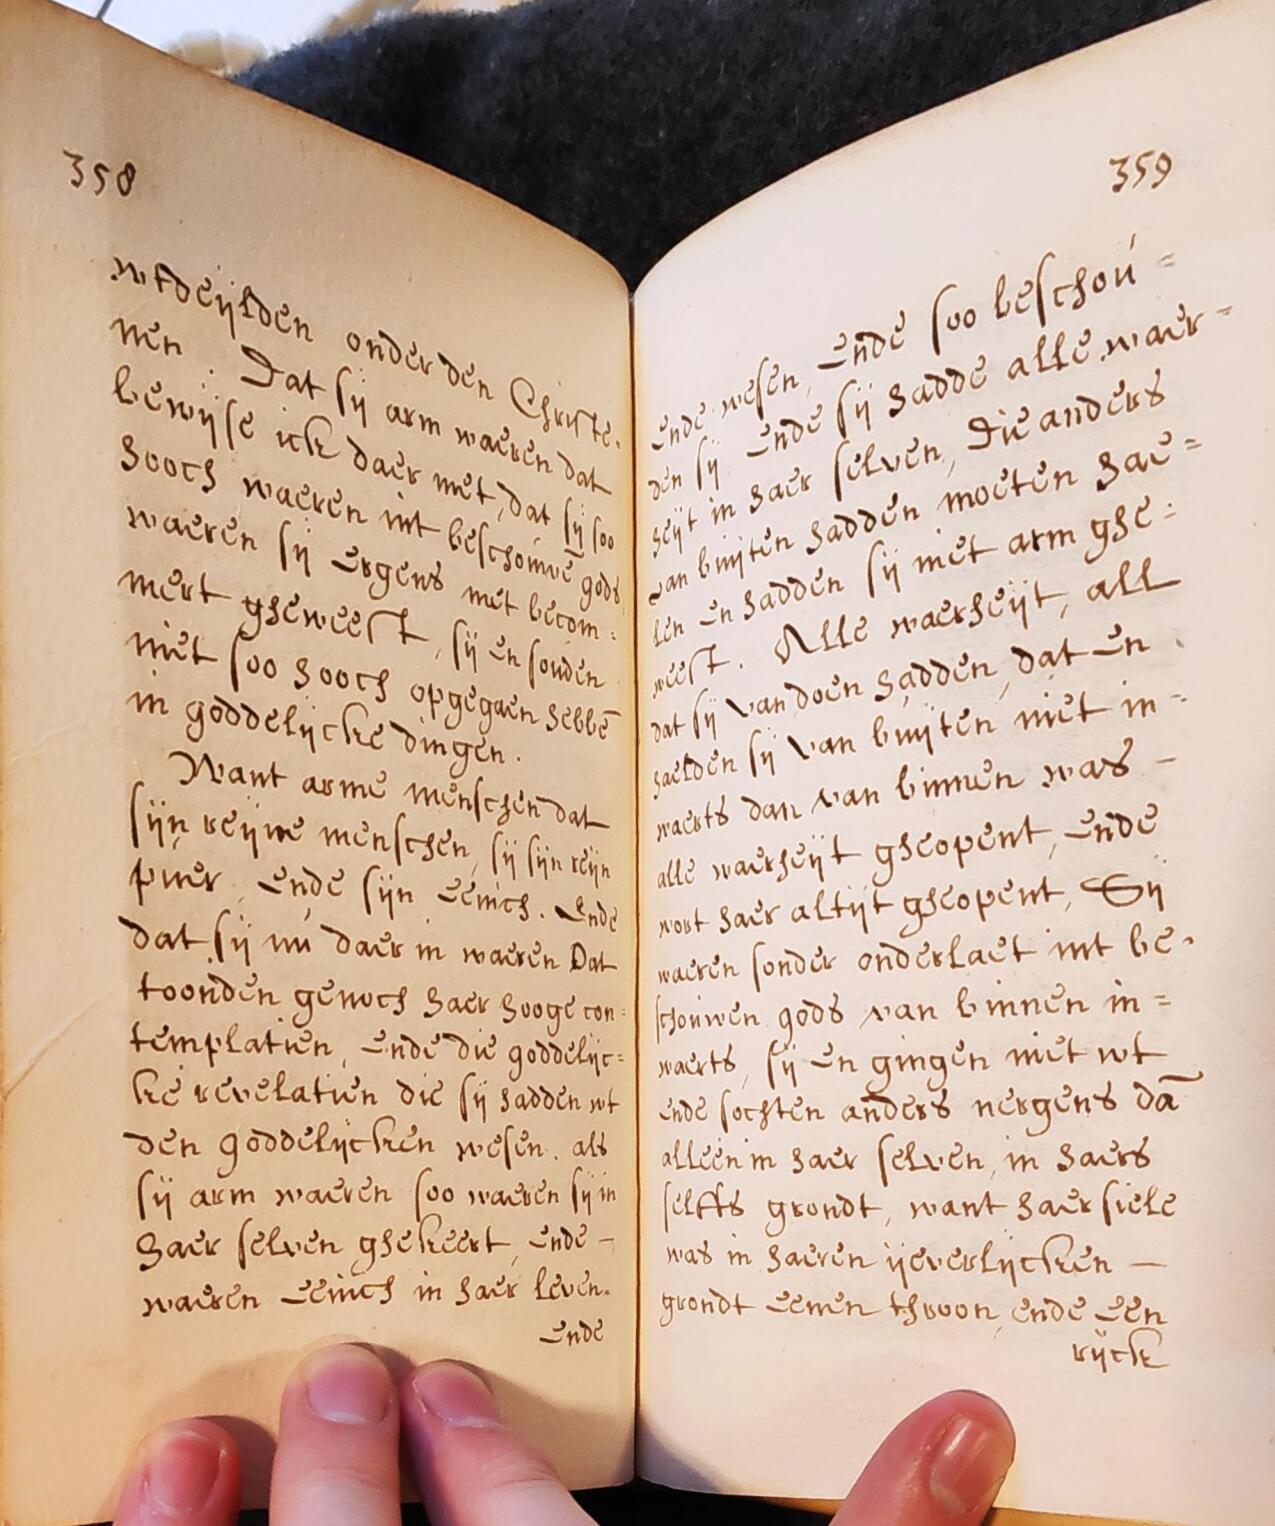 358
wtdeijlden onder den Christe-
nen. Dat sij arm waeren dat
bewijse ick daer met, dat sij soo
hooch waeren int beschouwē gods,
waeren sij ergens met becom=
mert gheweest, sij en souden
niet soo hooch opgegaen hebbē
in goddelijcke dingen.
Want arme menschen dat
sijn reijne menschen, sij sijn reijn
puer, ende sijn eenich. Ende
dat sij nú daer in waeren Dat
toonden genoch haer hooge con=
templatien, ende die goddelijc=
ke revelatien die sij hadden wt
den goddelijcken wesen. als
sij arm waeren soo waeren sij in
haer selven ghekeert, ende —
waeren eenich in haer leven.
ende
359
ende wesen, ende soo beschoú=
den sij, ende sij hadde alle waer-
heijt in haer selven, Die anders
van buijten hadden moeten hae=
len en hadden sij niet arm ghe=
weest. Alle waerheijt, all
dat sij van doen hadden, dat en
haelden sij van buijten niet in=
waerts dan van binnen was —
alle waerheijt gheopent, ende
wort haer altijt gheopent, Sij
waeren sonder onderlaet int be-
schouwen gods van binnen in=
waerts, sij en gingen niet wt
ende sochten anders nergens dā
alleen in haer selven, in haers
selffs grondt, want haer siele
was in haeren ijeverlijcken —
grondt eenen throon, ende een
rijck